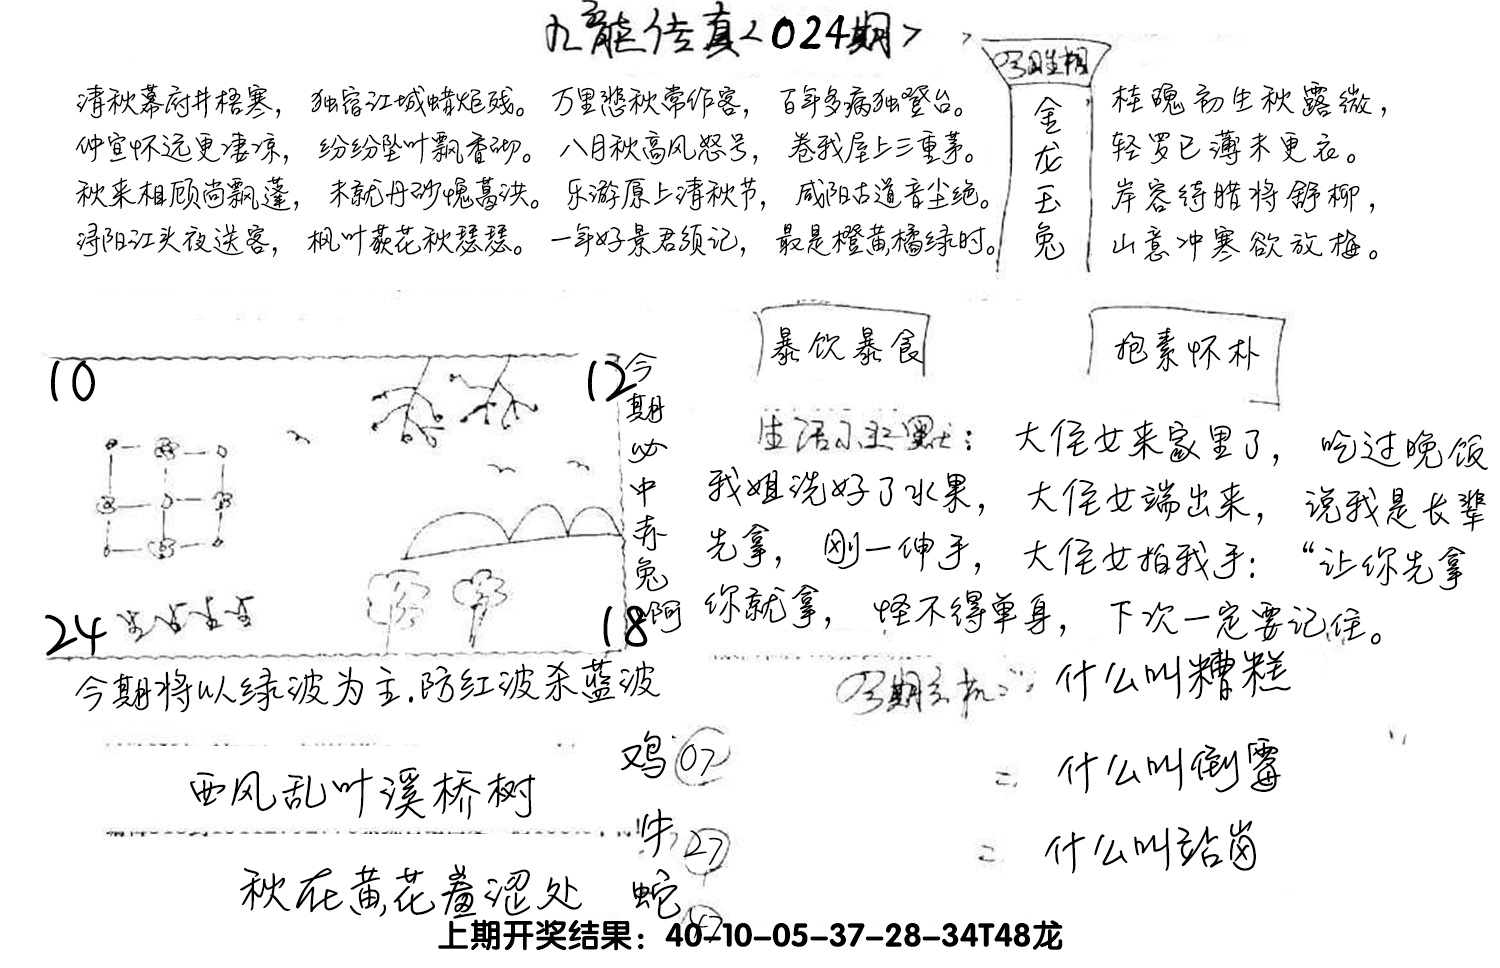 九龙传真<024期>
清秋幕府井梧寒，独宿江城蜡炬残。万里悲秋常作客，百年多病独登台。
仲宣怀远更凄凉，纷纷坠叶飘香砌。八月秋高风怒号，卷我屋上三重茅。
秋来相顾尚飘蓬，未就丹砂愧葛洪。乐游原上清秋节，咸阳古道音尘绝。
浔阳江头夜送客，枫叶荻花秋瑟瑟。一年好景君须记，最是橙黄橘绿时。
今期生相
金龙玉兔
桂魄初生秋露微，
轻罗已薄未更衣。
岸容待腊将舒柳，
山意冲寒欲放梅。
10
12
24
18
今期必中赤兔啊
暴饮暴食
抱素怀朴
生活小幽默：大侄女来家里了，吃过晚饭
我姐洗好了水果，大侄女端出来，说我是长辈
先拿，刚一伸手，大侄女拍我手："让你先拿
你就拿，怪不得单身，下次一定要记住。
今期将以绿波为主.防红波杀蓝波
今期玄机：什么叫糟糕
二 什么叫倒霉
二 什么叫站岗
西风乱叶溪桥树
秋在黄花羞涩处
鸡 07
牛 27
蛇
上期开奖结果：40-10-05-37-28-34T48龙